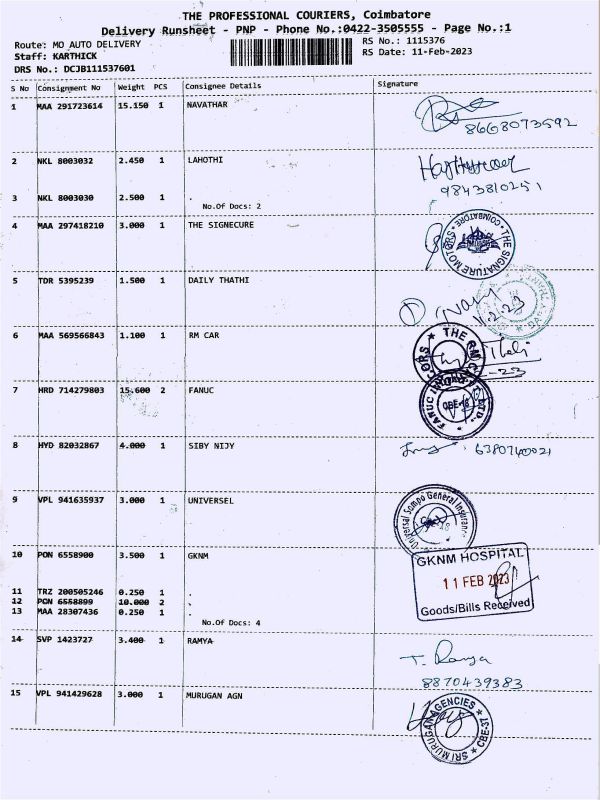 THE PROFESSIONAL COURIERS, Coimbatore
Delivery Runsheet - PNP - Phone No.:0422-3505555 - Page No.:1
Route: MO_AUTO DELIVERY
RS No.: 1115376
Staff: KARTHICK
RS Date: 11-Feb-2023
DRS No.: DCJB111537601
S No Consignment No Weight PCS Consignee Details Signature
1 MAA 291723614 15.150 1 NAVATHAR
8668073592
2 NKL 8003032 2.450 1 LAHOTHI
9843810251
3 NKL 8003030 2.500 1 .
No.Of Docs: 2
4 MAA 297418210 3.000 1 THE SIGNECURE
THE SIGNATURE MOTORS COIMBATORE
5 TDR 5395239 1.500 1 DAILY THATHI
6 MAA 569566843 1.100 1 RM CAR
THE RM C
7 HRD 714279803 15.600 2 FANUC
FANUC IN LTD.
CBE-18
8 HYD 82032867 4.000 1 SIBY NIJY
6380740021
9 VPL 941635937 3.000 1 UNIVERSEL
Universal Sompo General Insurance
10 PON 6558900 3.500 1 GKNM
GKNM HOSPITAL
11 FEB 2023
Goods/Bills Received
11 TRZ 200505246 0.250 1 .
12 PON 6558899 10.000 2 .
13 MAA 28307436 0.250 1 .
No.Of Docs: 4
14 SVP 1423727 3.400 1 RAMYA
T. Ramya
8870439383
15 VPL 941429628 3.000 1 MURUGAN AGN
SRI MURUGAN AGENCIES CBE-37